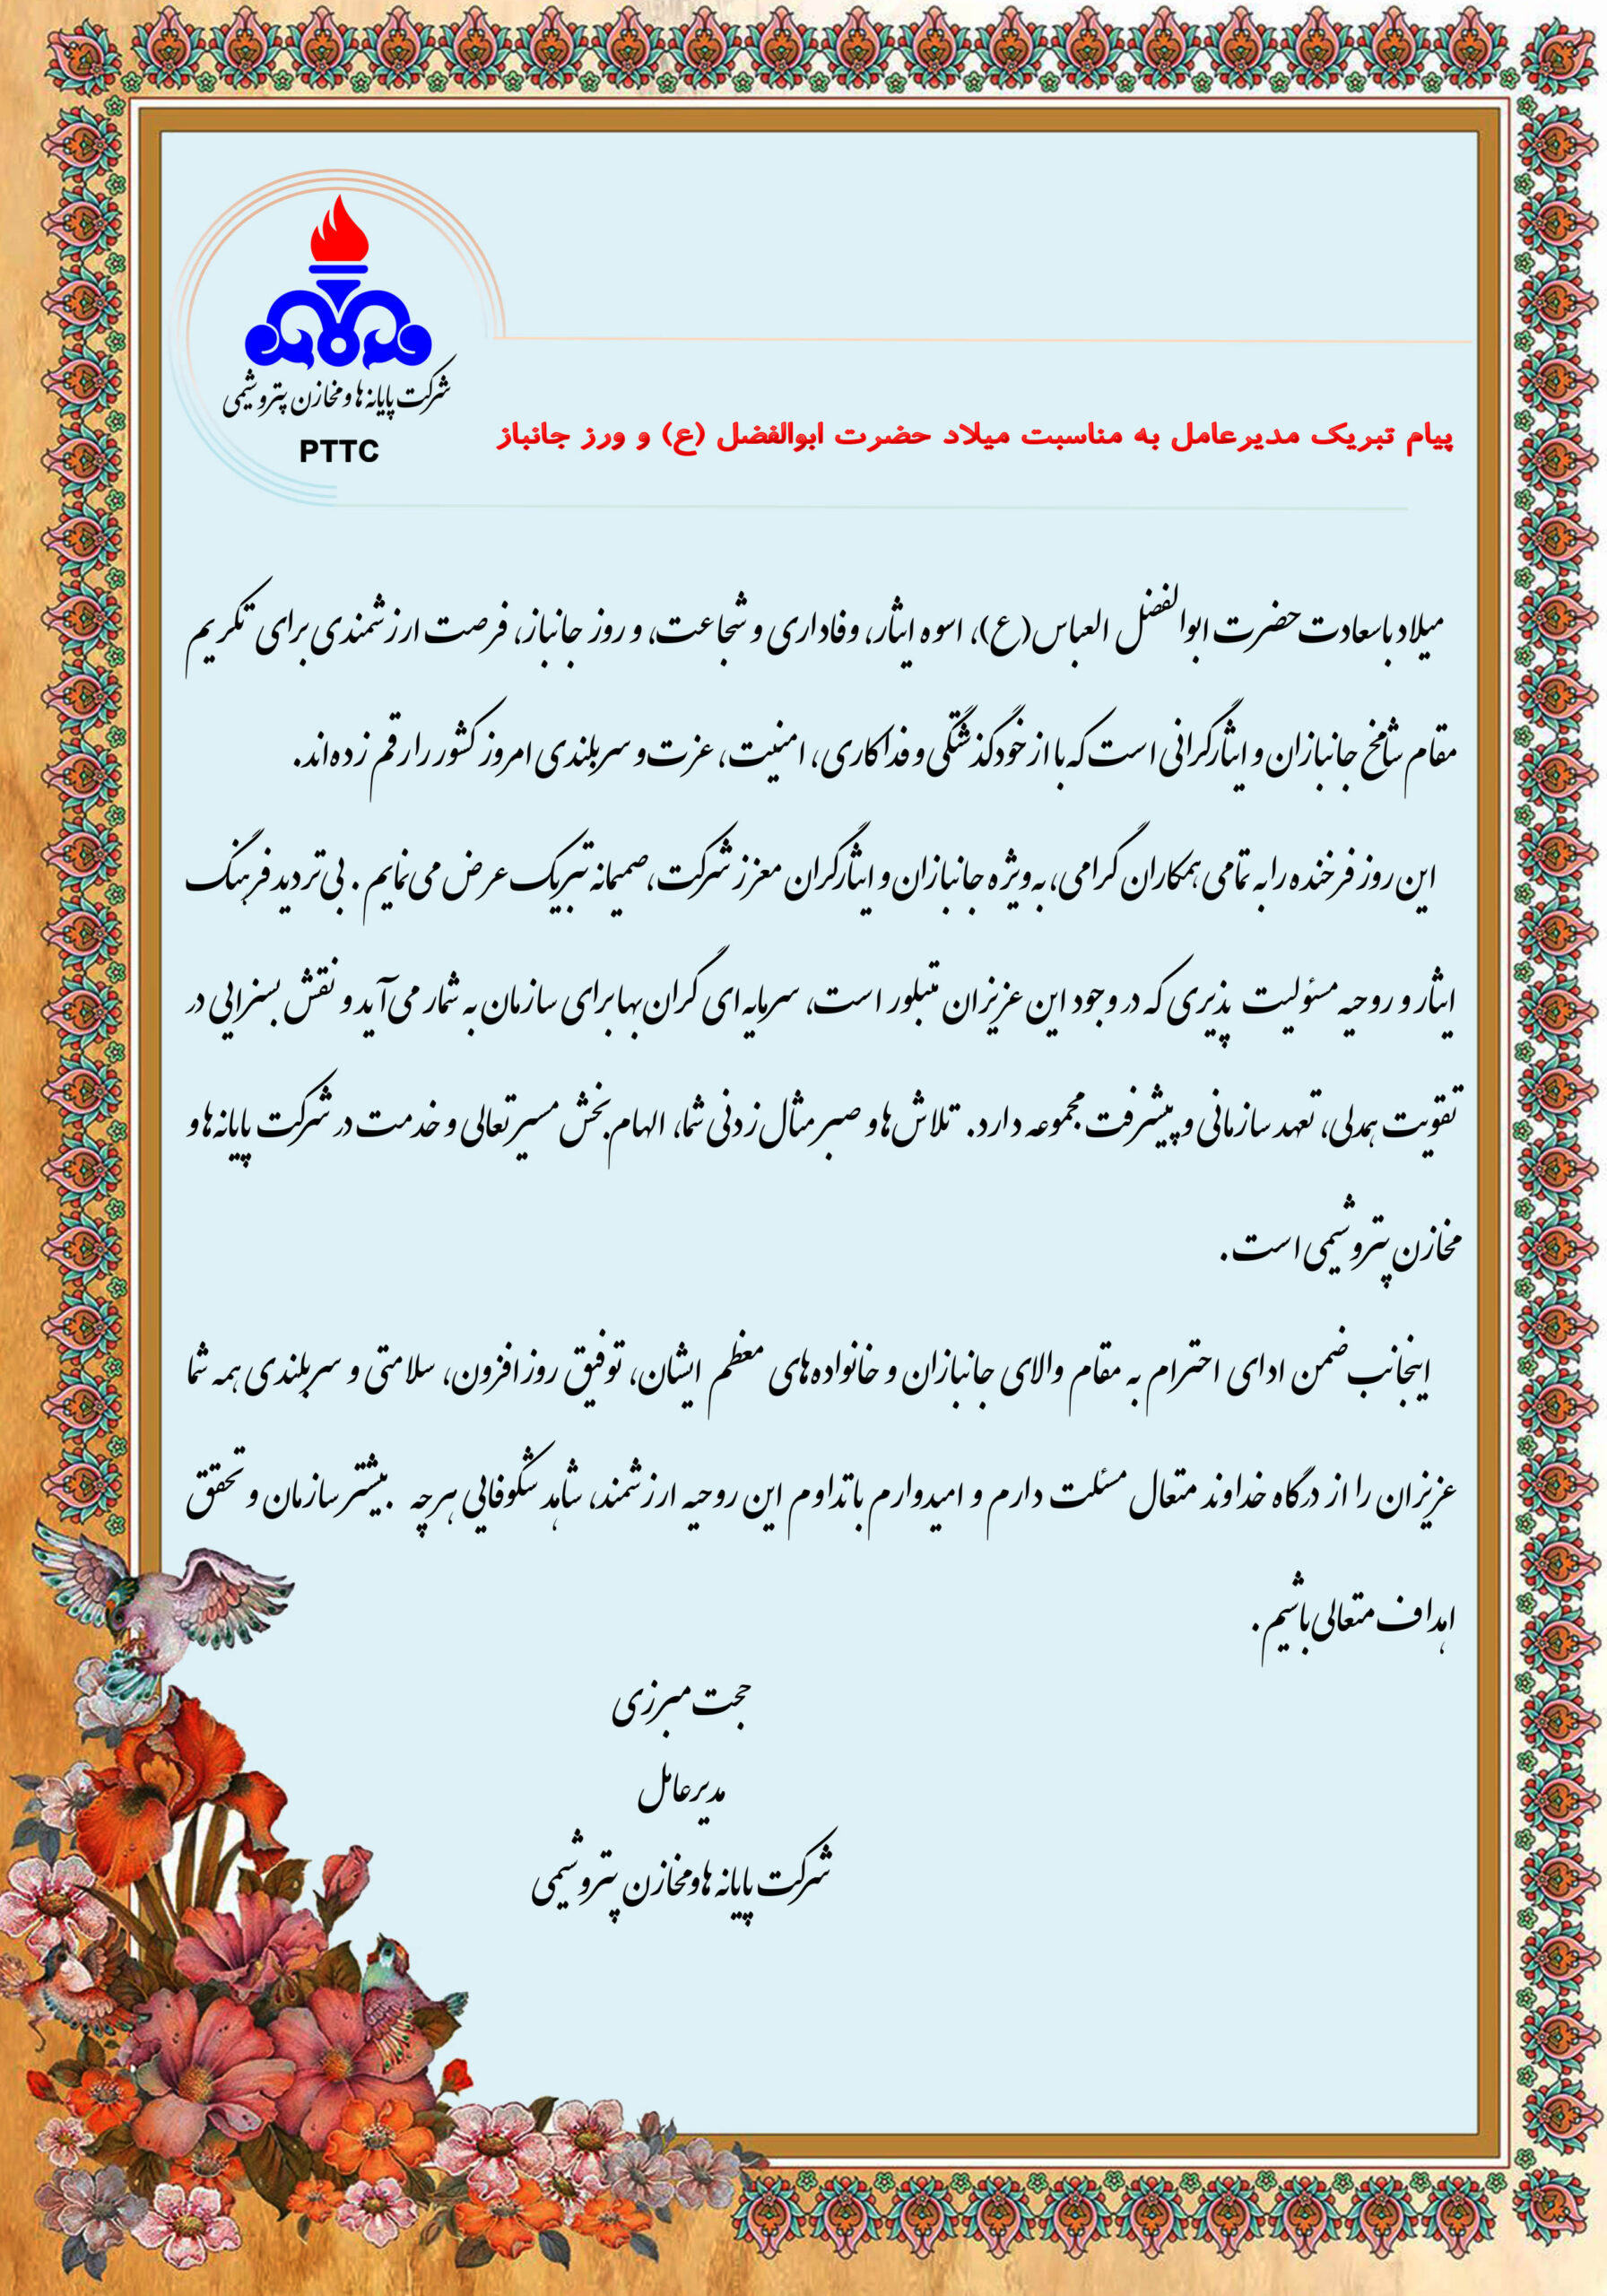 شرکت پایانه ها و مخازن پتروشیمی
PTTC
پیام تبریک مدیرعامل به مناسبت میلاد حضرت ابوالفضل (ع) و ورز جانباز
میلاد باسعادت حضرت ابوالفضل العباس(ع)، اسوه ایثار، وفاداری و شجاعت، و روز جانباز، فرصت ارزشمندی برای تکریم
مقام شامخ جانبازان و ایثارگرانی است که با از خودگذشتگی و فداکاری، امنیت، عزت و سربلندی امروز کشور را رقم زده‌اند.
این روز فرخنده را به تمامی همکاران گرامی، به ویژه جانبازان و ایثارگران معزز شرکت، صمیمانه تبریک عرض می نمایم . بی تردید فرهنگ
ایثار و روحیه مسئولیت پذیری که در وجود این عزیزان متبلور است، سرمایه ای گران بها برای سازمان به شمار می آید و نقش بسزایی در
تقویت همدلی، تعهد سازمانی و پیشرفت مجموعه دارد. تلاش ها و صبر مثال زدنی شما، الهام بخش مسیر تعالی و خدمت در شرکت پایانه ها و
مخازن پتروشیمی است.
اینجانب ضمن ادای احترام به مقام والای جانبازان و خانواده های معظم ایشان، توفیق روزافزون، سلامتی و سربلندی همه شما
عزیزان را از درگاه خداوند متعال مسئلت دارم و امیدوارم با تداوم این روحیه ارزشمند، شاهد شکوفایی هرچه بیشتر سازمان و تحقق
اهداف متعالی باشیم .
حجت میرزی
مدیرعامل
شرکت پایانه ها و مخازن پتروشیمی